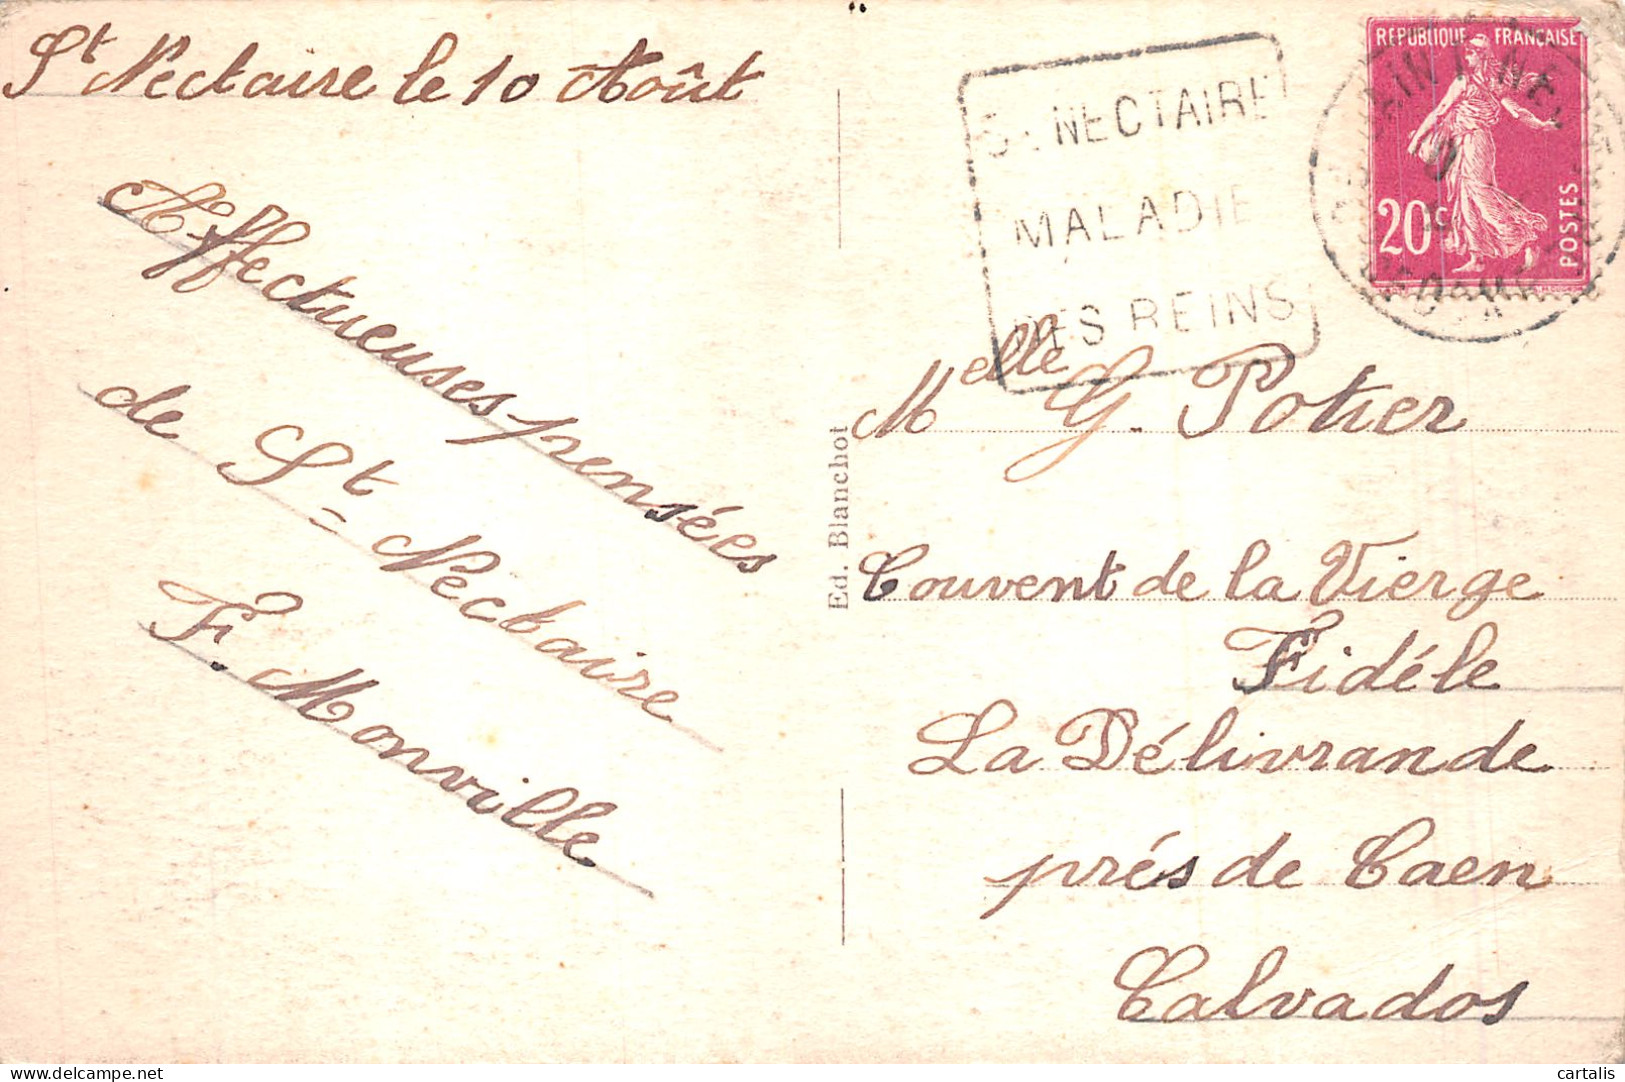 St Nectaire le 10 Août
Affectueuses pensées
de St Nectaire
F. Monville
Ed. Blanchot
St NECTAIRE
MALADIE
DES REINS
REPUBLIQUE FRANÇAISE
20c
POSTES
Melle G. Potier
Couvent de la Vierge
Fidéle
La Délivrande
prés de Caen
Calvados
cartalis
delcampe.net